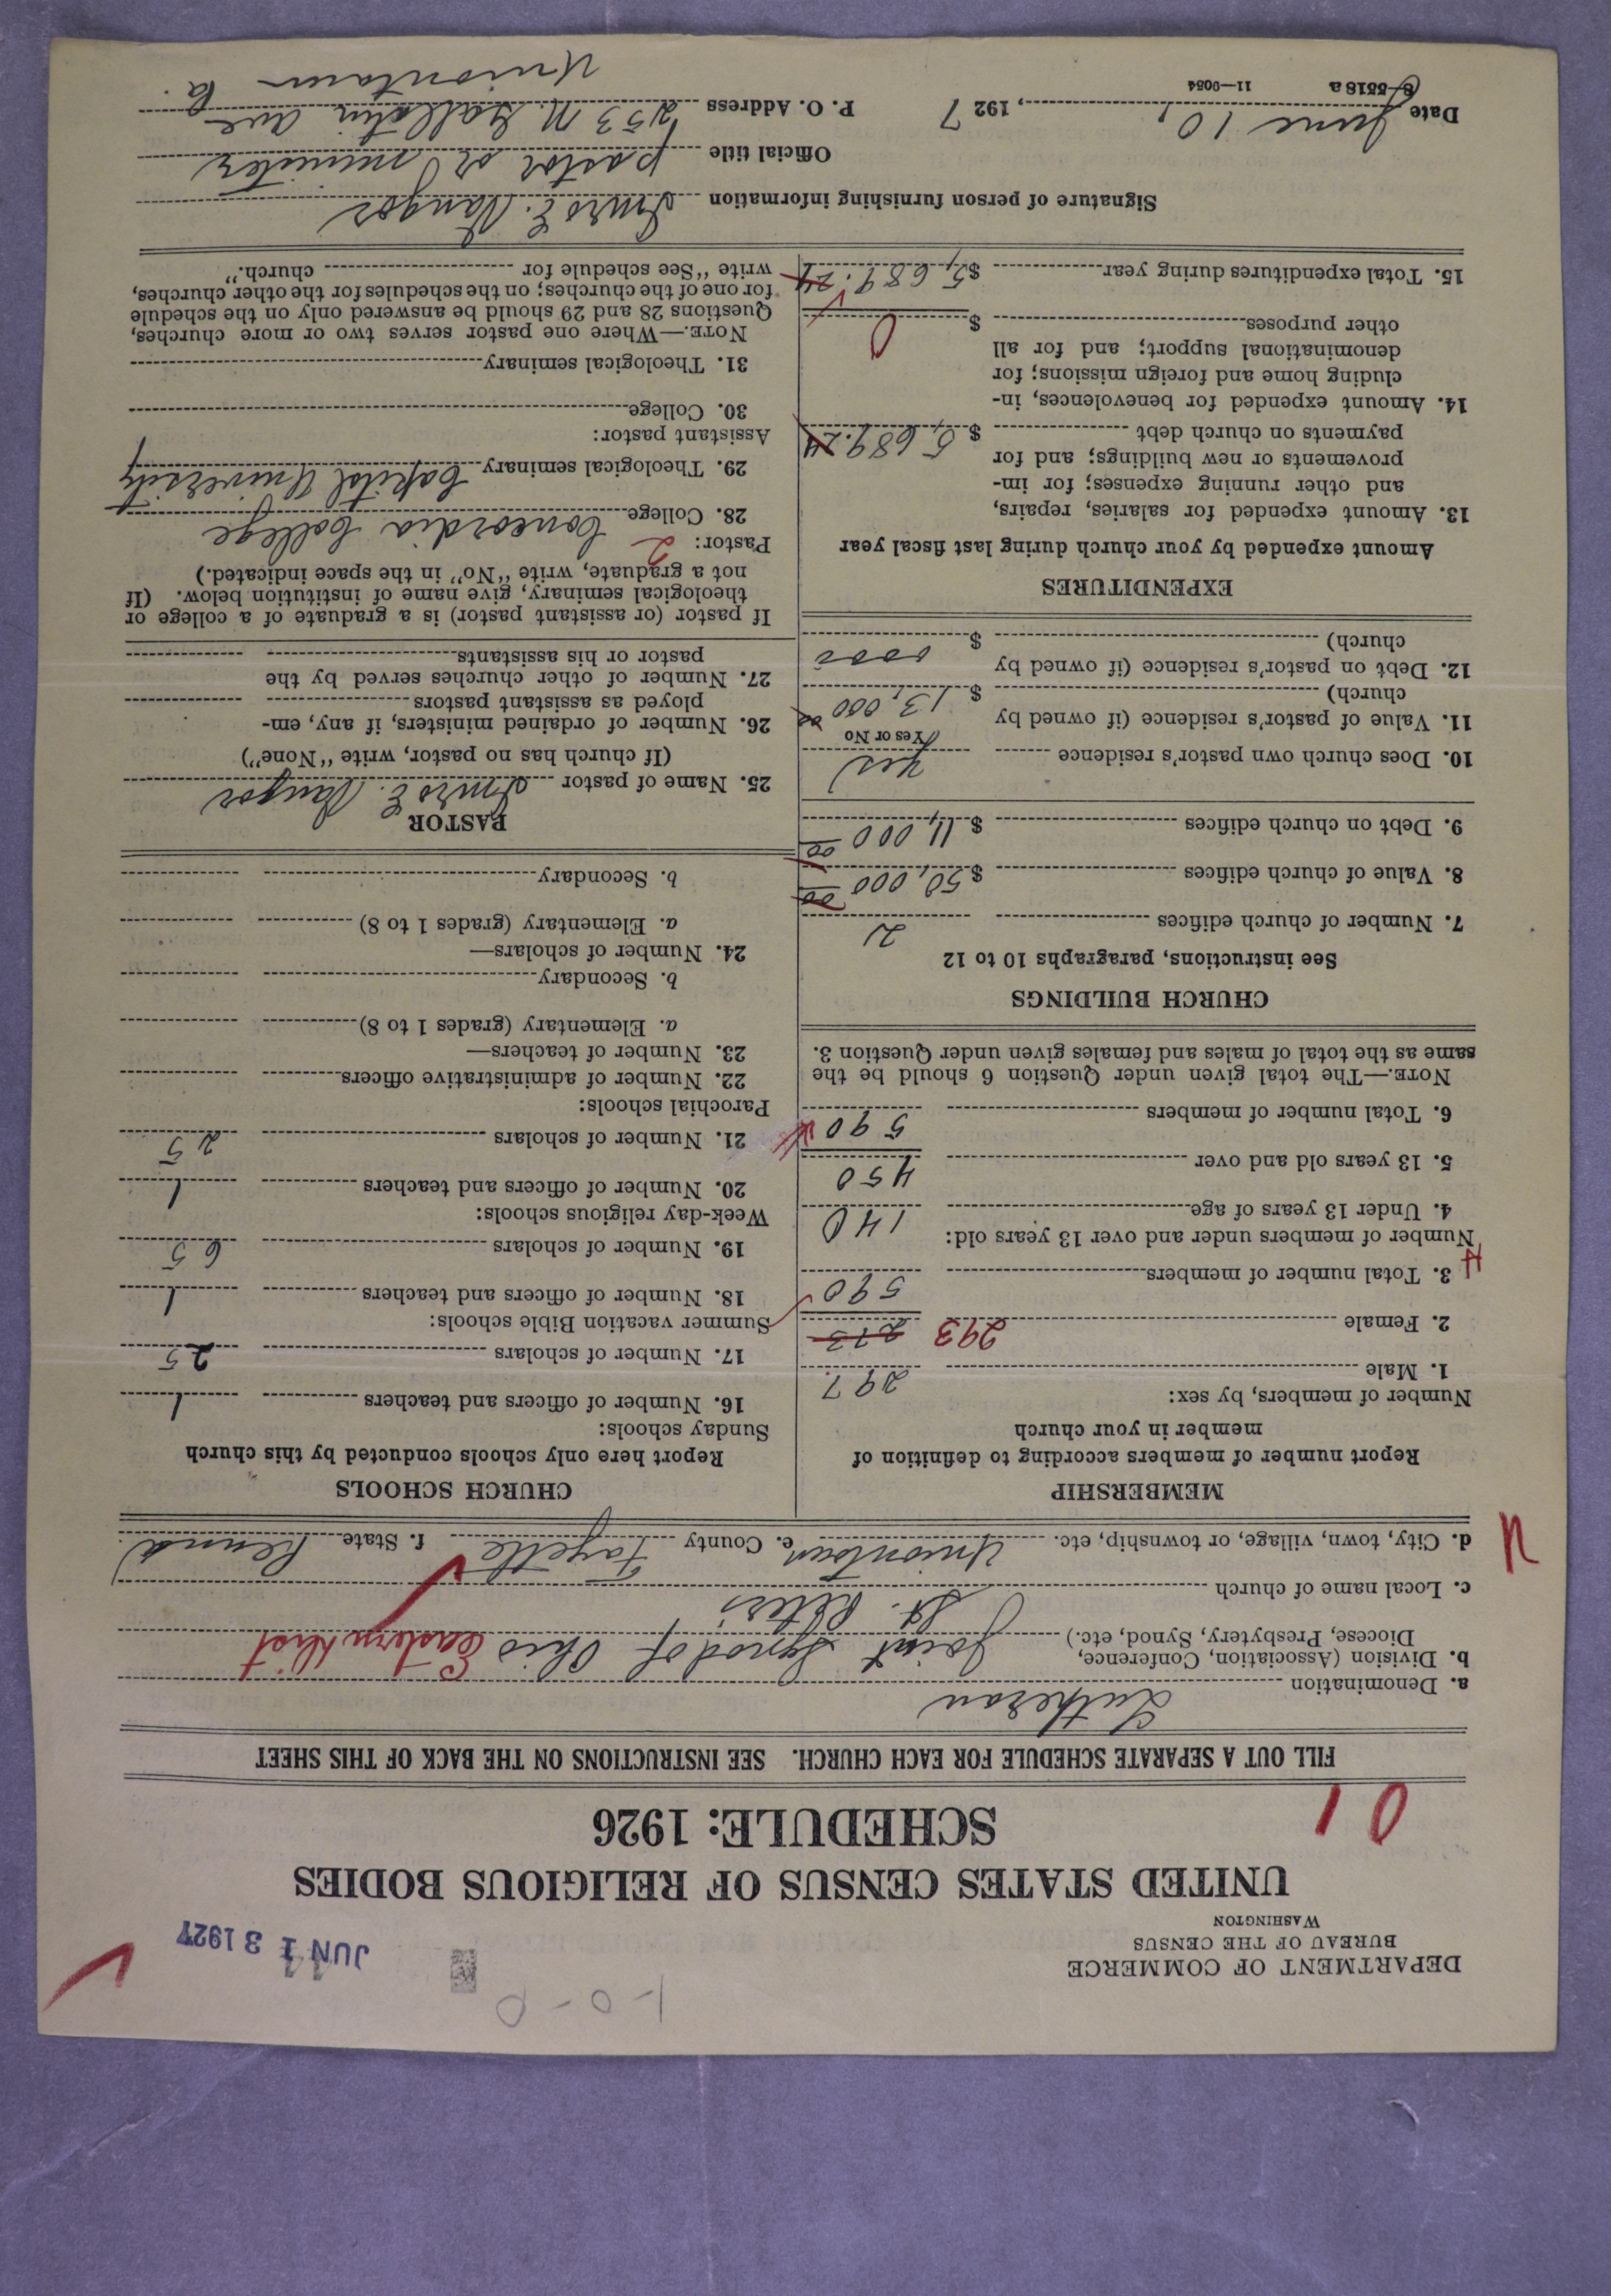 1-0-0
DEPARTMENT OF COMMERCE
BUREAU OF THE CENSUS
WASHINGTON
JUN 13 1927
UNITED STATES CENSUS OF RELIGIOUS BODIES
SCHEDULE: 1926
01
FILL OUT A SEPARATE SCHEDULE FOR EACH CHURCH. SEE INSTRUCTIONS ON THE BACK OF THIS SHEET
a. Denomination Lutheran
b. Division (Association, Conference, Diocese, Presbytery, Synod, etc.) Joint Synod of Ohio Eastern Dist
c. Local name of church St. Peters
d. City, town, village, or township, etc. Uniontown e. County Fayette f. State Penna.
n
MEMBERSHIP
Report number of members according to definition of
member in your church
Number of members, by sex:
1. Male 297
2. Female 293 273
3. Total number of members 590
Number of members under and over 13 years old:
4. Under 13 years of age 140
5. 13 years old and over 450
6. Total number of members 590
NOTE.—The total given under Question 6 should be the
same as the total of males and females given under Question 3.
CHURCH BUILDINGS
See instructions, paragraphs 10 to 12
7. Number of church edifices 2
8. Value of church edifices $50,000 00
9. Debt on church edifices $11,000 00
10. Does church own pastor's residence Yes
Yes or No
11. Value of pastor's residence (if owned by
church) $13,000 00
12. Debt on pastor's residence (if owned by
church) $ 0000
EXPENDITURES
Amount expended by your church during last fiscal year
13. Amount expended for salaries, repairs,
and other running expenses; for im-
provements or new buildings; and for
payments on church debt $5,689.24
14. Amount expended for benevolences, in-
cluding home and foreign missions; for
denominational support; and for all
other purposes $ 0
15. Total expenditures during year $5,689.24
CHURCH SCHOOLS
Report here only schools conducted by this church
Sunday schools:
16. Number of officers and teachers 1
17. Number of scholars 25
Summer vacation Bible schools:
18. Number of officers and teachers 1
19. Number of scholars 65
Week-day religious schools:
20. Number of officers and teachers 1
21. Number of scholars 25
Parochial schools:
22. Number of administrative officers
23. Number of teachers—
a. Elementary (grades 1 to 8)
b. Secondary
24. Number of scholars—
a. Elementary (grades 1 to 8)
b. Secondary
PASTOR
25. Name of pastor
(If church has no pastor, write "None")
26. Number of ordained ministers, if any, em-
ployed as assistant pastors
27. Number of other churches served by the
pastor or his assistants
If pastor (or assistant pastor) is a graduate of a college or
theological seminary, give name of institution below. (If
not a graduate, write "No" in the space indicated.)
Pastor: 2
28. College Concordia College
29. Theological seminary Capital University
Assistant pastor:
30. College
31. Theological seminary
NOTE.—Where one pastor serves two or more churches,
Questions 28 and 29 should be answered only on the schedule
for one of the churches; on the schedules for the other churches,
write "See schedule for church."
Signature of person furnishing information
Official title pastor or minister
Date June 10, 1927 P. O. Address 253 N. Gallatin Ave
8-5518 a 11—9054 Uniontown Pa.